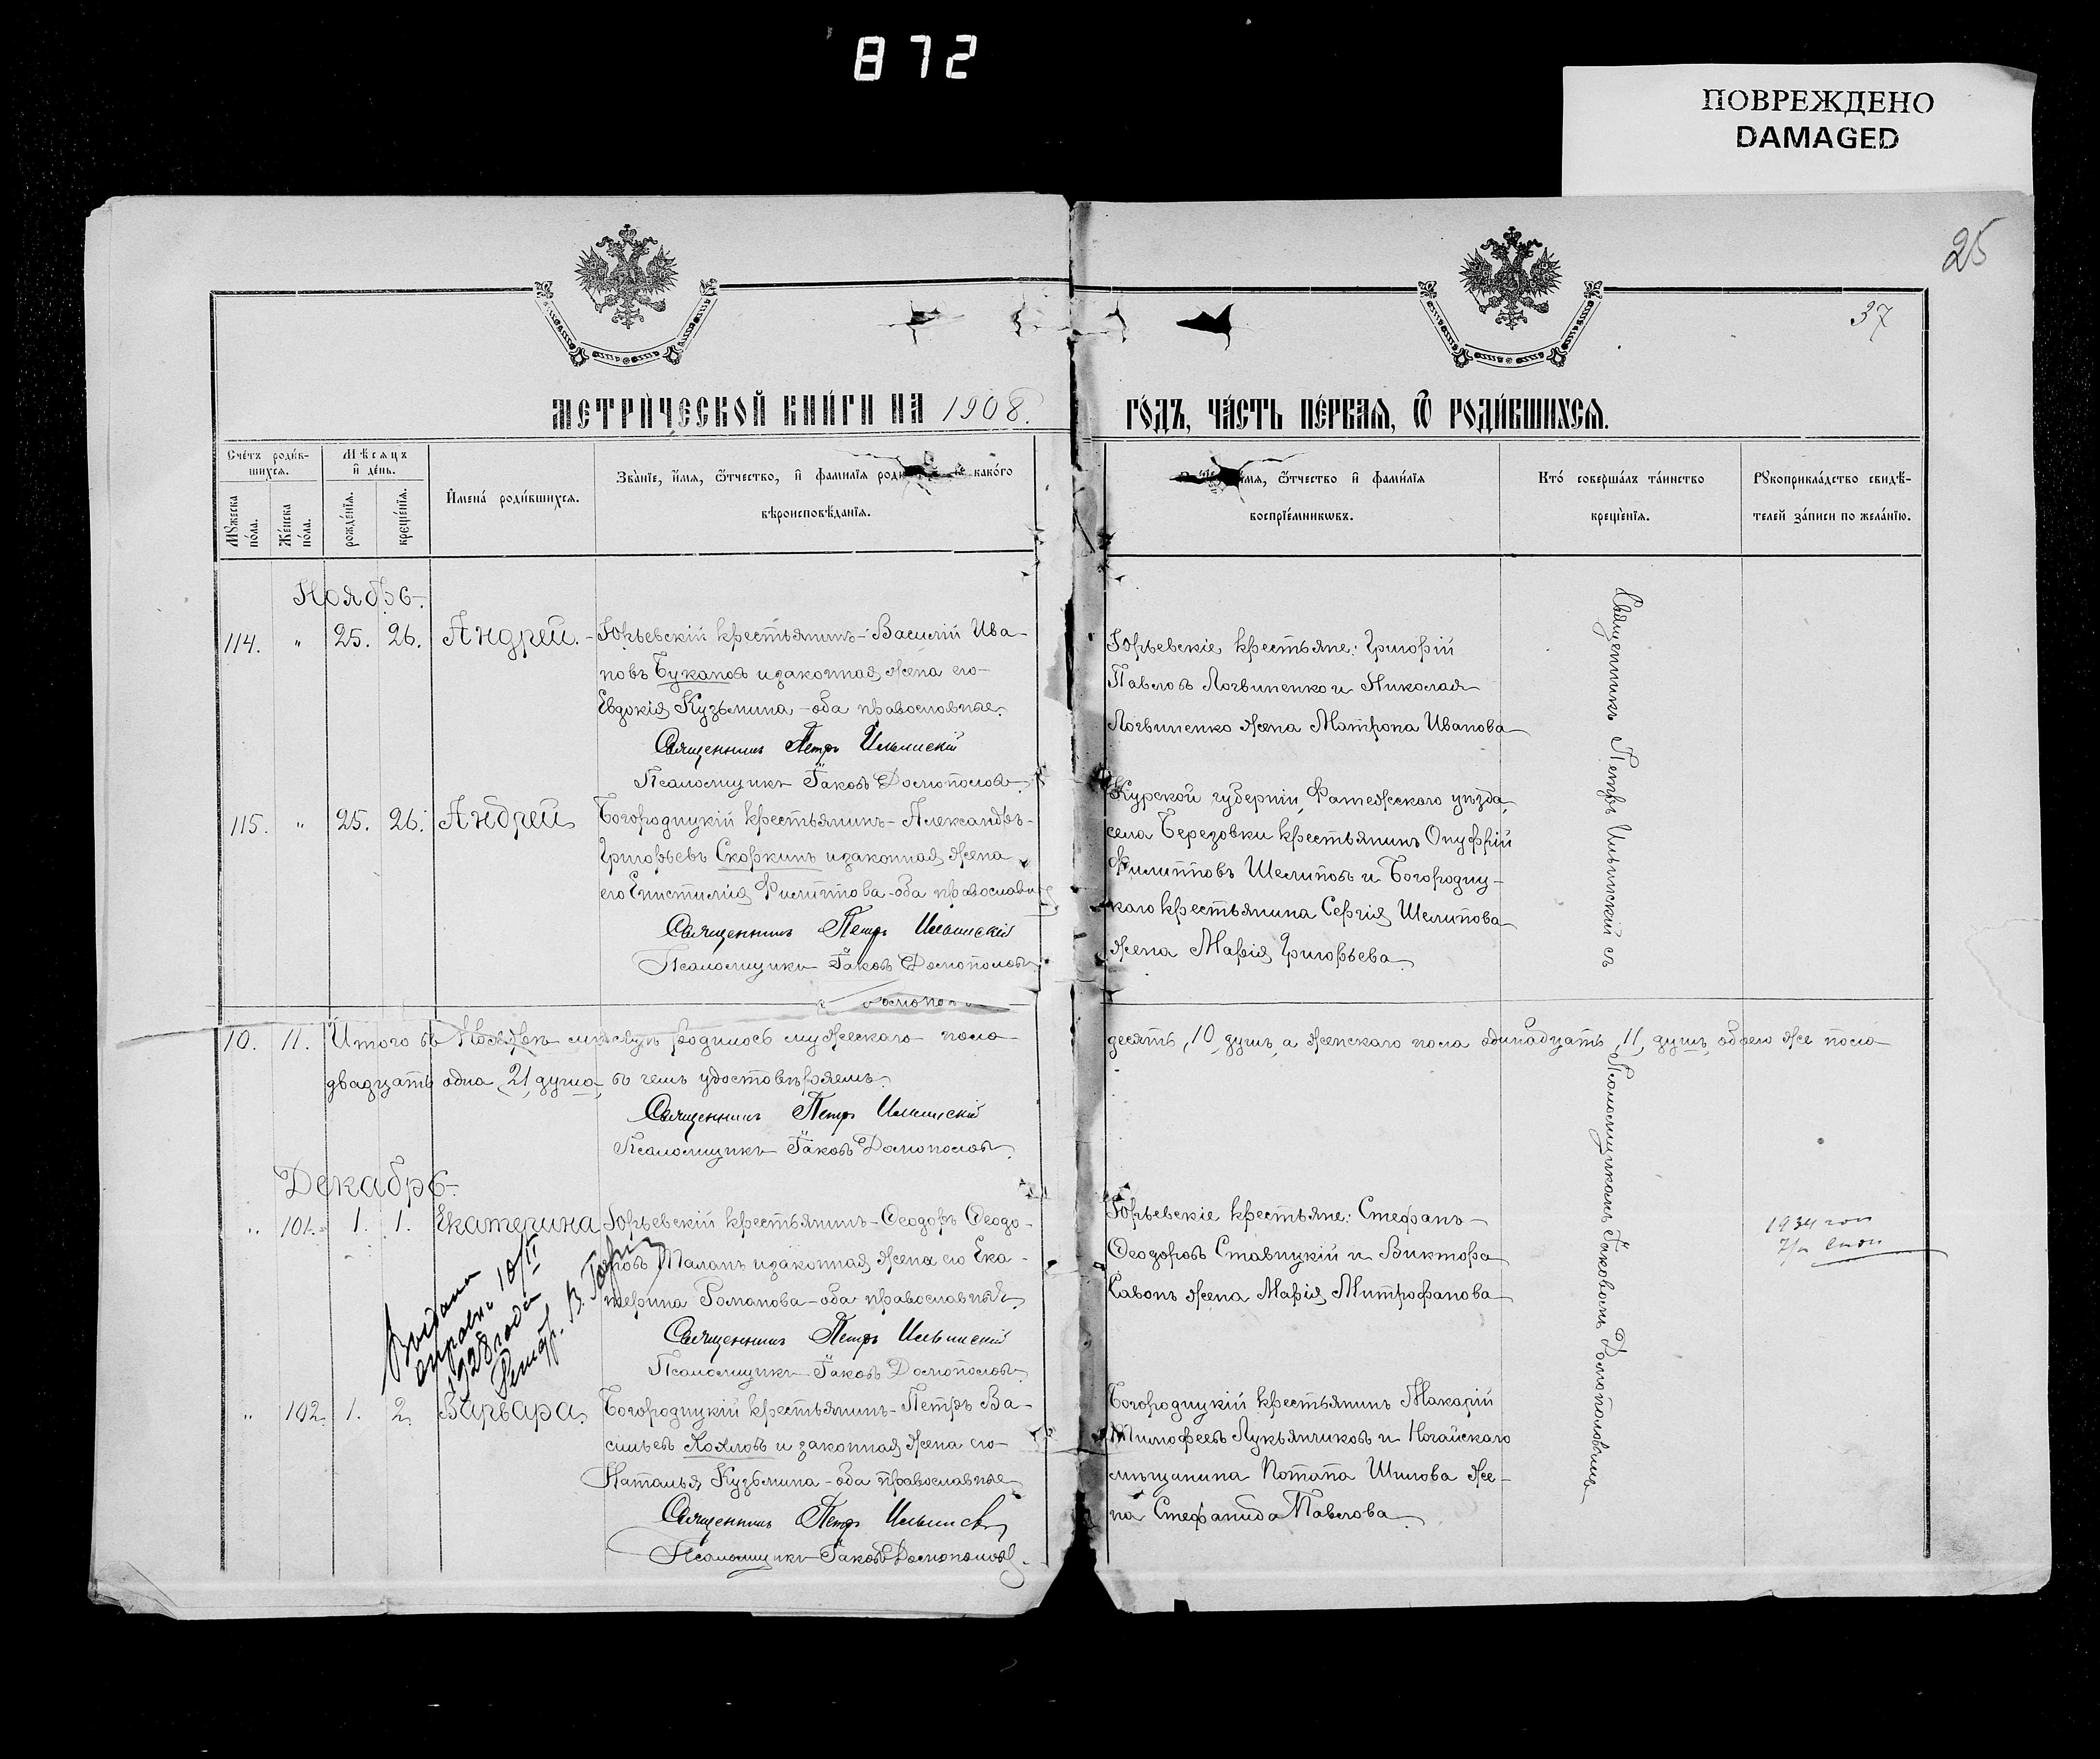 872
ПОВРЕЖДЕНО
DAMAGED
25
37
МЕТРИ́ЧЕСКОЙ КНИ́ГИ НА 1908.
ГО́ДЪ, ЧА́СТЬ ПЕ́РВАѦ, Ѿ РОДИ́ВШИХСѦ.
Сче́тъ роди́в-
шихсѧ.
Мꙋжеска по́ла.
Же́нска по́ла.
Мѣсѧцъ
и҆ де́нь.
рожде́нїѧ.
креще́нїѧ.
И҆мена́ роди́вшихсѧ.
Зва́нїе, и҆́мѧ, ѻ҆́тчество, и҆ фами́лїѧ како́го
вѣроисповѣ́данїѧ.
ѻ҆́тчество и҆ фами́лїѧ
воспрїе́мникѡвъ.
Кто́ соверша́лъ та́инство
креще́нїѧ.
Рꙋкоприкла́дство свидѣ́-
телей за́писи по жела́нїю.
Ноябрь.
114. " 25. 26. Андрей. Юрьевскій крестьянинъ - Василій Ива-
новъ Букановъ и законная жена его
Евдокія Кузьмина - оба православные.
Священникъ Петръ Ильинскій
Псаломщикъ Іаковъ Домополовъ.
Юрьевскіе крестьяне: Григорій
Павловъ Логвиненко и Николая
Логвиненко жена Матрона Иванова
115. " 25. 26. Андрей Богородицкій крестьянинъ - Александръ
Григорьевъ Скоркинъ и законная жена
его Епистимія Филиппова - оба православн
Священникъ Петръ Ильинскій
Псаломщикъ Іаковъ Домополовъ
Курской губерніи, Фатежского уѣзда,
села Березовки крестьянинъ Онуфрій
Филипповъ Шелиповъ и Богородиц-
каго крестьянина Сергія Шелипова
жена Марія Григорьева.
10. 11. Итого въ Ноябрѣ мѣсяцѣ родилось мужескаго пола
десять, 10, душъ, а женскаго пола одинадцать, 11, душъ, обоего же пола
двадцать одна, 21, душа, въ чемъ удостовѣряемъ.
Священникъ Петръ Ильинскій
Псаломщикъ Іаковъ Домополовъ.
Декабрь.
" 101. 1. 1. Екатерина Юрьевскій крестьянинъ - Ѳеодоръ Ѳеодо-
ровъ Маланъ и законная жена его Ека-
терина Романова - оба православные.
Священникъ Петръ Ильинскій
Псаломщикъ Іаковъ Домополовъ.
Юрьевскіе крестьяне: Стефанъ
Ѳеодоровъ Ставицкій и Виктора
Савонъ жена Марія Митрофанова
Выдана
справка 10/II
1928 года
1934
" 102. 1. 2. Варвара. Богородицкій крестьянинъ - Петръ Ва-
сильевъ Хохловъ и законная жена его
Наталья Кузьмина - оба православные
Священникъ Петръ Ильинскій
Псаломщикъ Іаковъ Домополовъ.
Богородицкій крестьянинъ Макарій
Тимофеевъ Лукьянчиковъ и Ногайскаго
мѣщанина Потапа Шилова же-
на Стефанида Павлова.
Священникъ Петръ Ильинскій съ
Псаломщикомъ Іаковомъ Домополовымъ